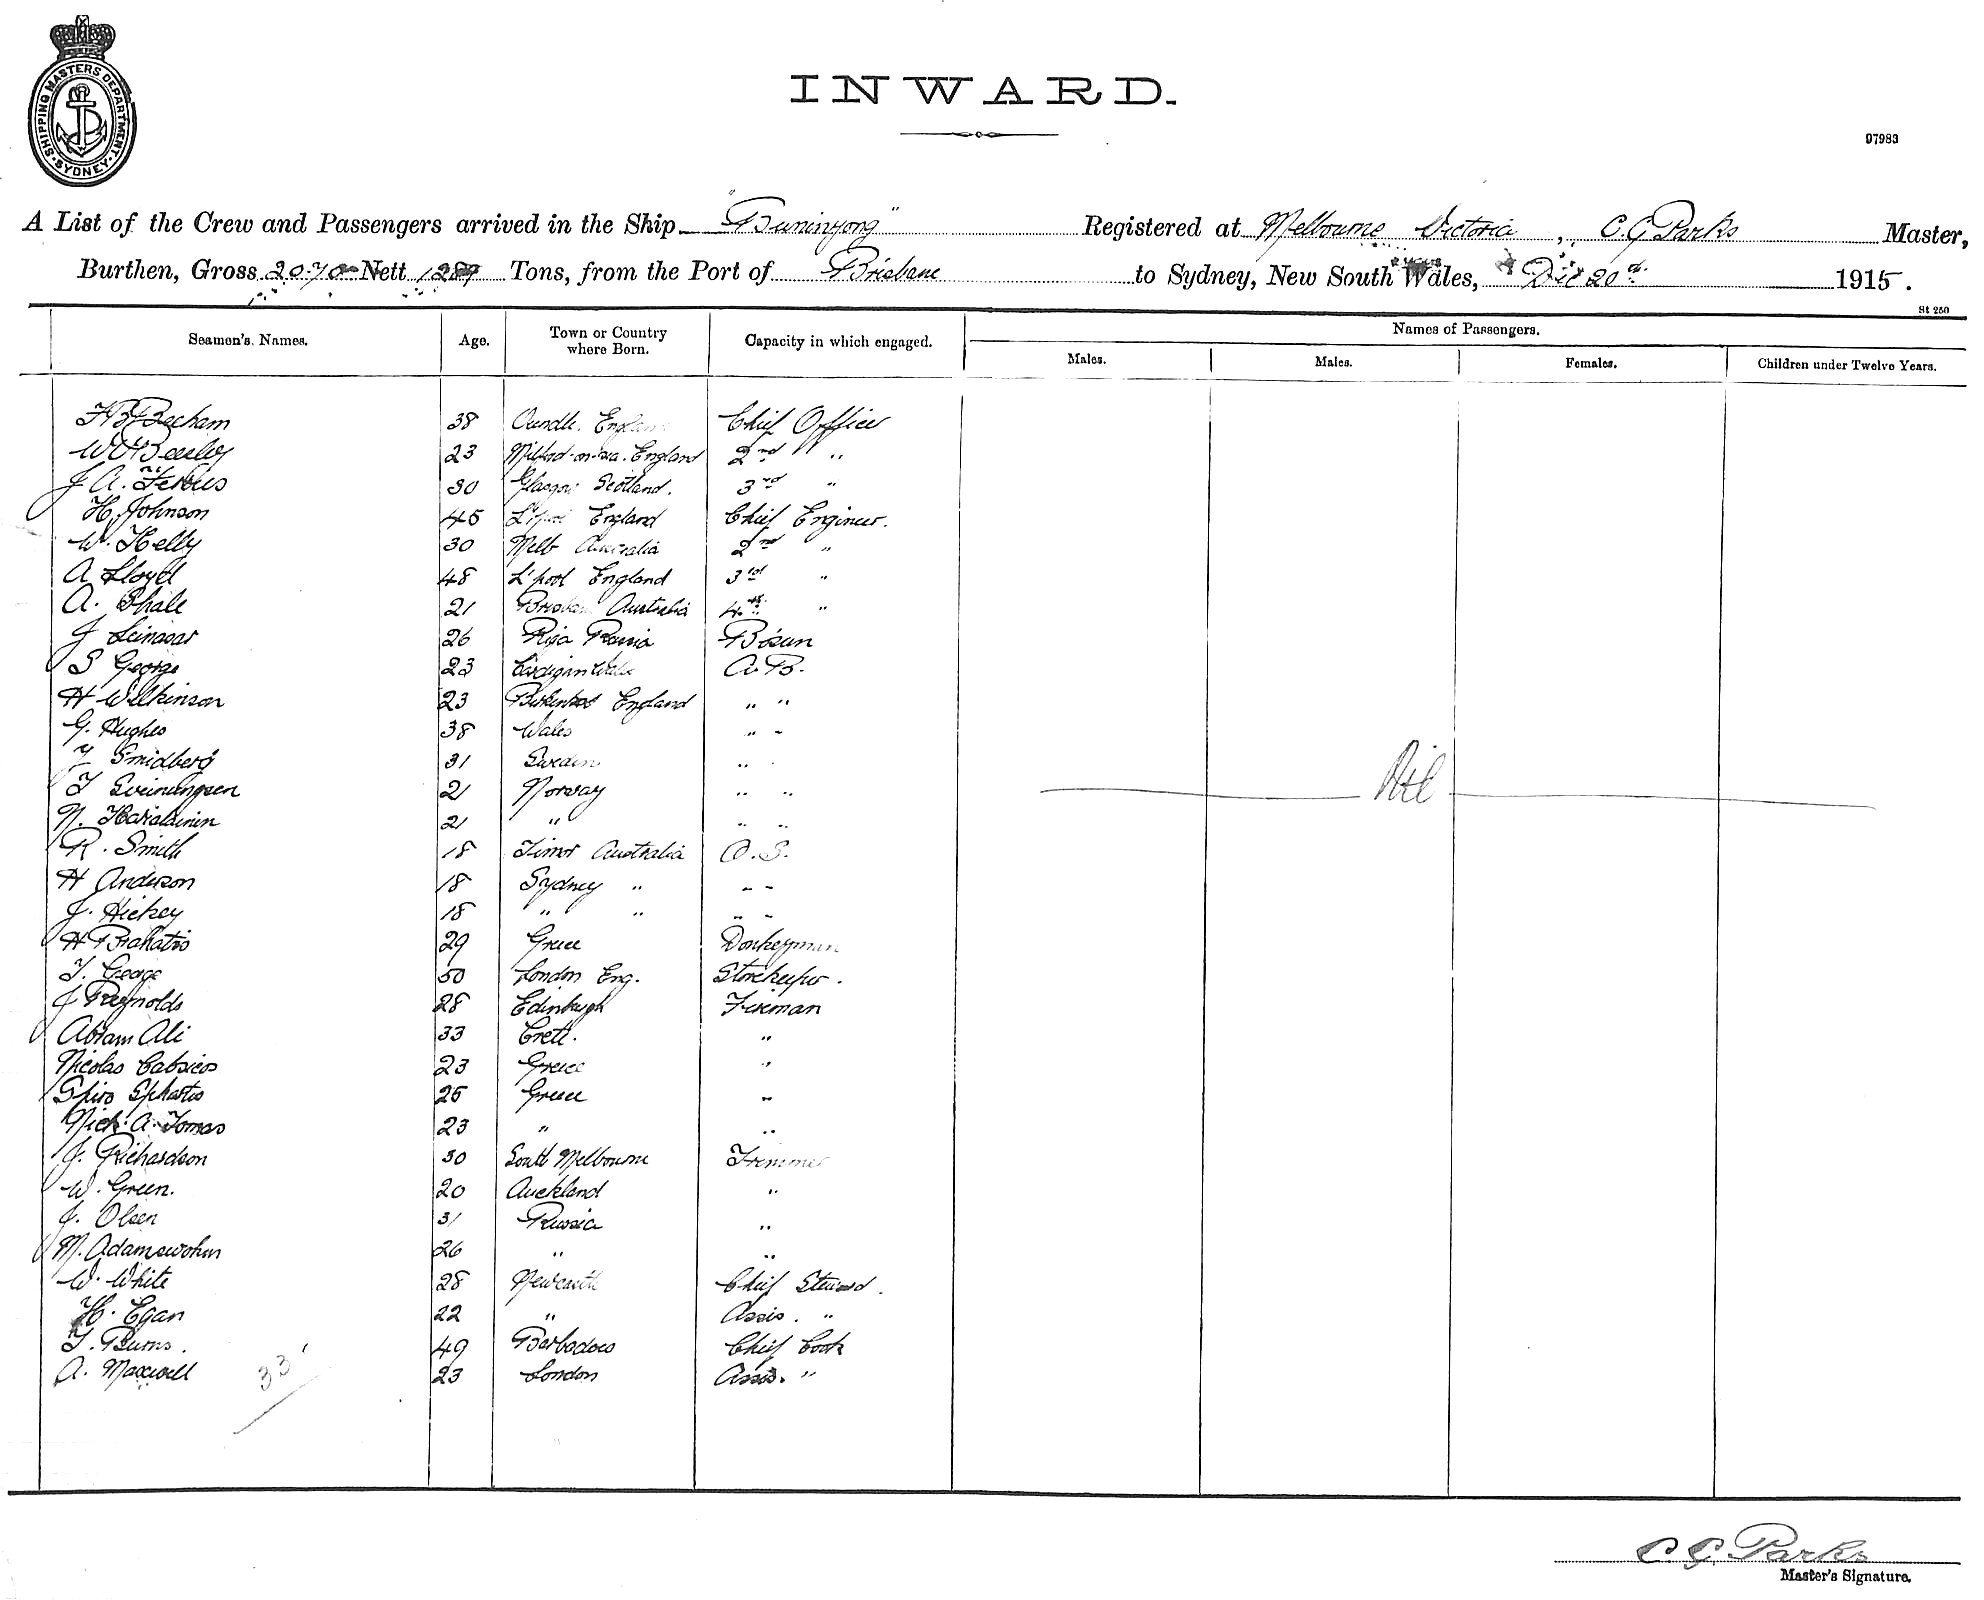 SHIPPING MASTERS DEPARTMENT · SYDNEY ·
INWARD.
97983
A List of the Crew and Passengers arrived in the Ship "Buninyong" Registered at Melbourne Victoria, C. G. Parks Master,
Burthen, Gross 2070 Nett 1289 Tons, from the Port of Brisbane to Sydney, New South Wales, Dec 20th 1915.
St 250
Seamen's Names. Age. Town or Country where Born. Capacity in which engaged. Names of Passengers.
Males. Males. Females. Children under Twelve Years.
38 Oundle. England Chief Officer
23 Milford-on-sea. England 2nd "
J A. 30 Glasgow Scotland. 3rd "
H. Johnson 45 L'pool England Chief Engineer.
W. Kelly 30 Melb Australia 2nd "
A Lloyd 48 L'pool England 3rd "
A. 21 Brisbane Australia 4th "
J 26 Riga Russia Bosun
S George 23 Cardigan Wales A.B.
H Wilkinson 23 Birkenhead England " "
G. Hughes 38 Wales " "
Smidberg 31 Sweden " "
21 Norway " "
N. 21 " " "
R. Smith 18 Timor Australia O.S.
H Anderson 18 Sydney " " "
J. Hickey 18 " " " "
H 29 Greece Donkeyman
T. George 50 London Eng. Storekeeper.
J Reynolds 28 Edinburgh Fireman
Abram Ali 33 Crete. "
Nicolas 23 Greece "
Spiro 25 Greece "
Nick. A. Tomas 23 " "
J. Richardson 30 South Melbourne Trimmer
W. Green. 20 Auckland "
J. Olsen 31 Russia "
M. 26 " "
W. White 28 Newcastle Chief Steward.
H. Egan 22 " Assis. "
T. Burns. 49 Barbadoes Chief Cook
A. Maxwell 23 London Assis. "
Nil
33
C. G. Parks
Master's Signature.